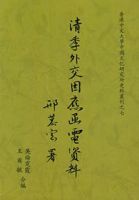 香港中文大學中國文化研究所史料叢刊之七
清季外交因應函電資料
邢慕寰署
王爾敏
合編